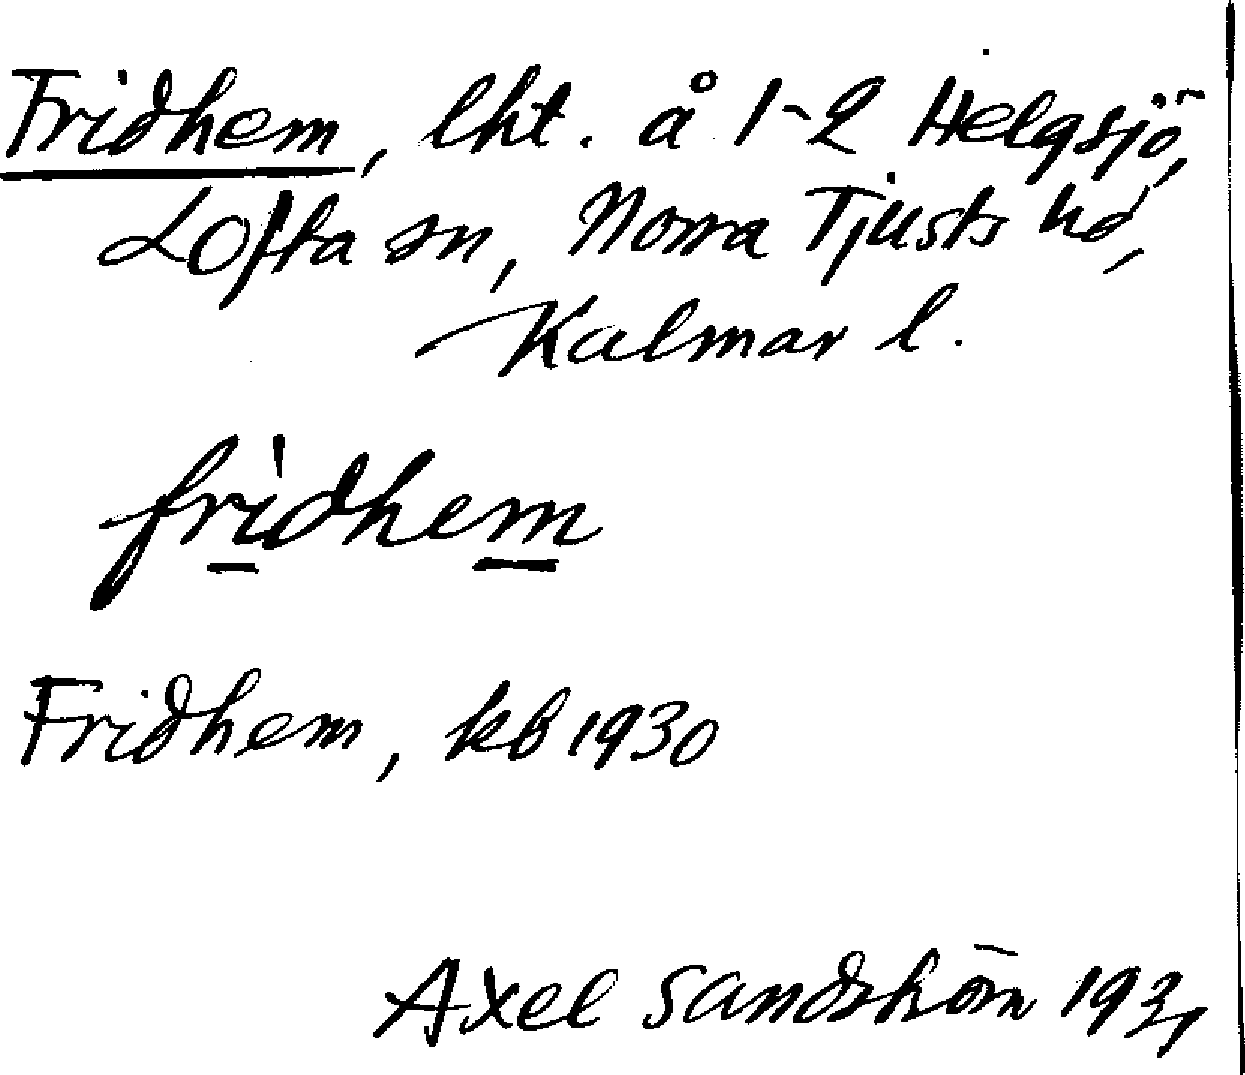 Fridhem, lht. å 1-2 Helgsjö,
Lofta sn, Norra Tjusts hd,
Kalmar l.
fridhem
Fridhem, kb 1930
Axel Sandström 1931